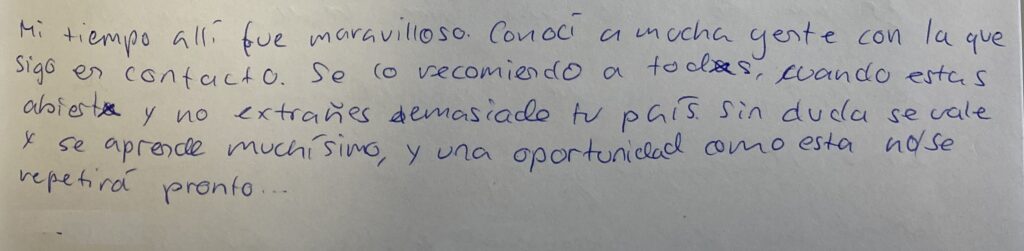 Mi tiempo allí fue maravilloso. Conocí a mucha gente con la que
sigo en contacto. Se lo recomiendo a todxs, cuando estas
abiertx y no extrañes demasiado tu país. Sin duda se vale
y se aprende muchísimo, y una oportunidad como esta no se
repetirá pronto...